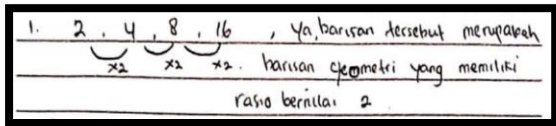 1. 2 , 4 , 8 , 16 , Ya, barisan tersebut merupakah
x2 x2 x2. barisan geometri yang memiliki
rasio bernilai 2